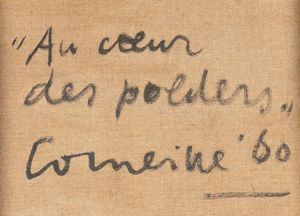 "Au cœur
des polders„
Corneille '60